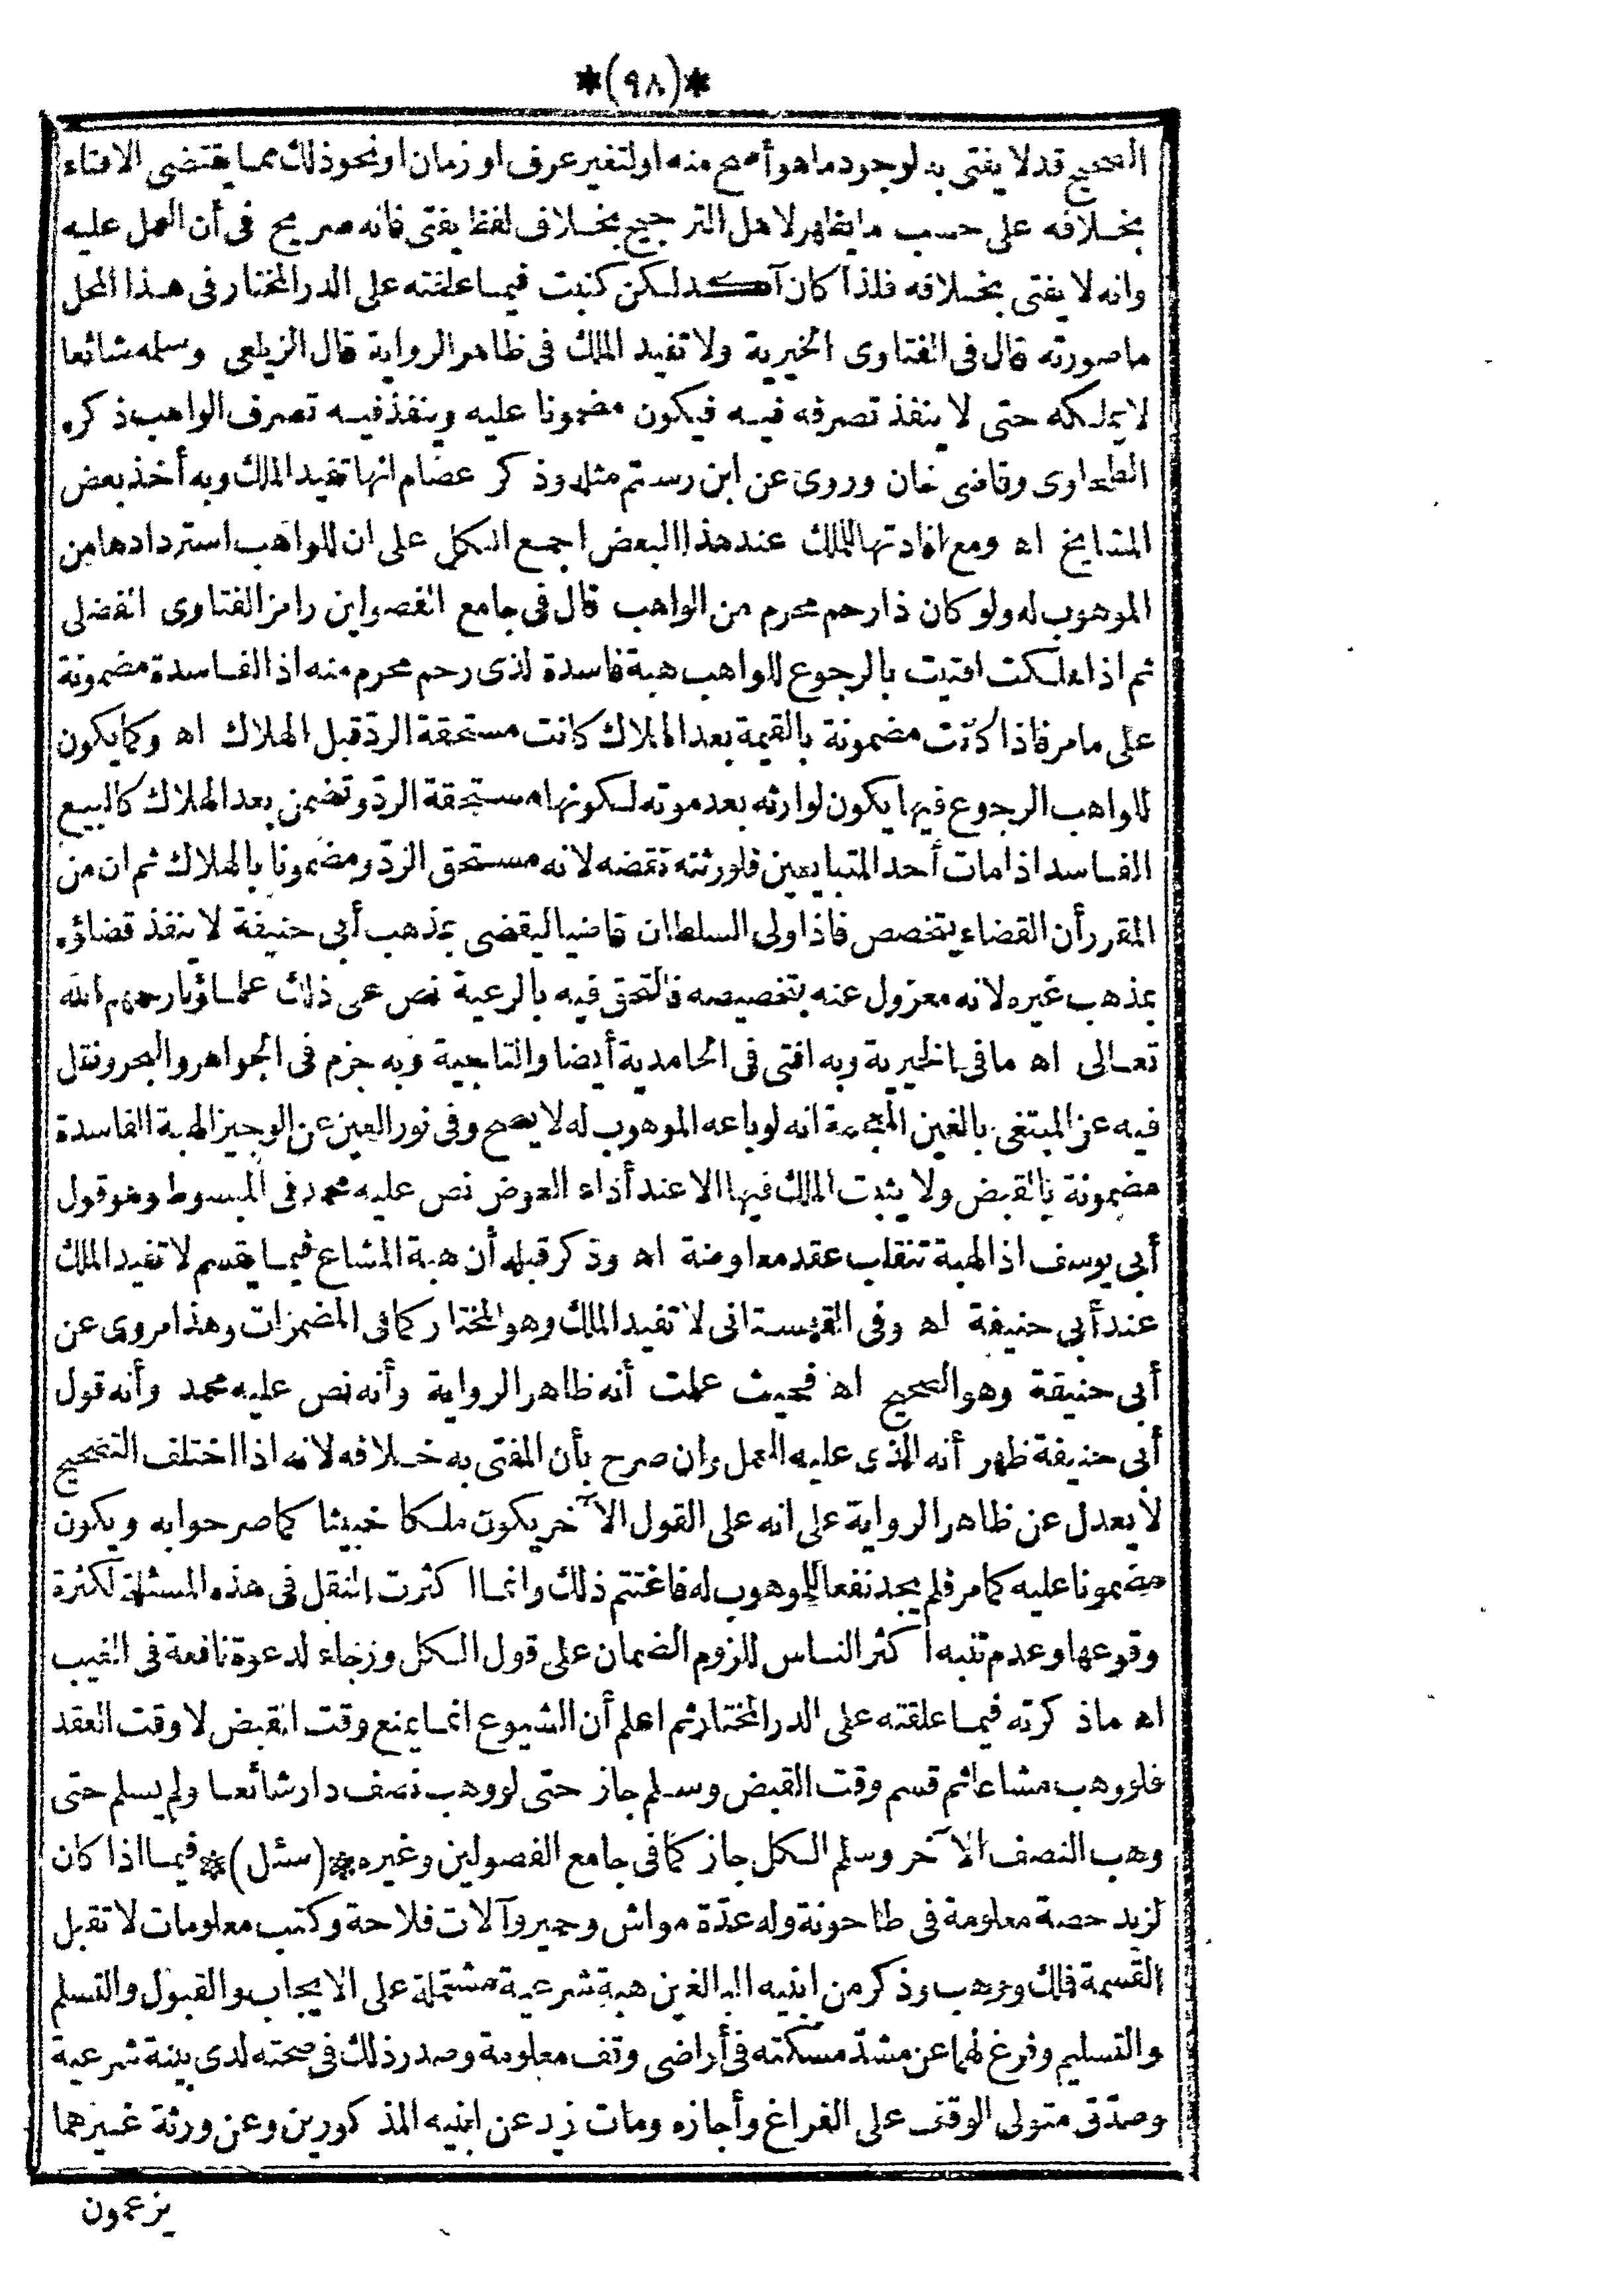 *(٩٨)*
الصحيح قد لا يفتى به لوجود ما هو أصح منه او لتغير عرف او زمان او نحو ذلك مما يقتضى الافتاء
بخلافه على حسب ما يظهر لاهل الترجيح بخلاف لفظ يفتى فانه صريح فى أن العمل عليه
وانه لا يفتى بخلافه فلذا كان آكد لكن كتبت فيما علقته على الدر المختار فى هذا المحل
ما صورته قال فى الفتاوى الخيرية ولا تفيد الملك فى ظاهر الرواية قال الزيلعى وسلمه شائعا
لا يملكه حتى لا ينفذ تصرفه فيه فيكون مضمونا عليه وينفذ فيه تصرف الواهب ذكره
الطحاوى وقاضى خان وروى عن ابن رستم مثله وذكر عصام انها تفيد الملك وبه أخذ بعض
المشايخ اه ومع افادتها للملك عند هذا البعض اجمع الكل على ان للواهب استردادها من
الموهوب له ولو كان ذا رحم محرم من الواهب قال فى جامع الفصولين رامزا لفتاوى الفضلى
ثم اذا هلكت افتيت بالرجوع للواهب هبة فاسدة لذى رحم محرم منه اذ الفاسدة مضمونة
على ما مر فاذا كانت مضمونة بالقيمة بعد الهلاك كانت مستحقة الردّ قبل الهلاك اه وكما يكون
للواهب الرجوع فيها يكون لوارثه بعد موته لكونها مستحقة الردّ وتضمن بعد الهلاك كالبيع
الفاسد اذا مات أحد المتبايعين فلورثته نقضه لانه مستحق الردّ ومضمونا بالهلاك ثم ان من
المقرر أن القضاء يتخصص فاذا ولى السلطان قاضيا ليقضى بمذهب أبى حنيفة لا ينفذ قضاؤه
بمذهب غيره لانه معزول عنه بتخصيصه فالتحق فيه بالرعية نص على ذلك علماؤنا رحمهم الله
تعالى اه ما فى الخيرية وبه افتى فى الحامدية أيضا والتاجية وبه جزم فى الجواهر والبحر ونقل
فيه عن المبتغى بالغين المعجمة انه لو باعه الموهوب له لا يصح وفى نور العين عن الوجيز الهبة الفاسدة
مضمونة بالقبض ولا يثبت الملك فيها الا عند أداء العوض نص عليه محمد فى المبسوط وهو قول
أبى يوسف اذ الهبة تنقلب عقد معاوضة اه وذكر قبله أن هبة المشاع فيما يقسم لا تفيد الملك
عند أبى حنيفة اه وفى القهستانى لا تفيد الملك وهو المختار كما فى المضمرات وهذا مروى عن
أبى حنيفة وهو الصحيح اه فحيث علمت أنه ظاهر الرواية وأنه نص عليه محمد وأنه قول
أبى حنيفة ظهر أنه الذى عليه العمل وان صرح بأن المفتى به خلافه لانه اذا اختلف التصحيح
لا يعدل عن ظاهر الرواية على انه على القول الآخر يكون ملكا خبيثا كما صرحوا به ويكون
مضمونا عليه كما مر فلم يجد نفعا للموهوب له فاغتنم ذلك وانما اكثرت النقل فى هذه المسئلة لكثرة
وقوعها وعدم تنبه أكثر الناس للزوم الضمان على قول الكل ورجاء لدعوة نافعة فى الغيب
اه ما ذكرته فيما علقته على الدر المختار ثم اعلم أن الشيوع انما يمنع وقت القبض لا وقت العقد
فلو وهب مشاعا ثم قسم وقت القبض وسلم جاز حتى لو وهب نصف دار شائعا ولم يسلم حتى
وهب النصف الآخر وسلم الكل جاز كما فى جامع الفصولين وغيره *(سئل)* فيما اذا كان
لزيد حصة معلومة فى طاحونة وله عدّة مواش وحمير وآلات فلاحة وكتب معلومات لا تقبل
القسمة فلك ووهب وذكر من ابنيه البالغين هبة شرعية مشتملة على الايجاب والقبول والتسلم
والتسليم وفرغ لهما عن مشدّ مسكته فى أراضى وقف معلومة وصدر ذلك فى صحته لدى بينة شرعية
وصدّق متولى الوقف على الفراغ وأجازه ومات زيد عن ابنيه المذكورين وعن ورثة غيرهما
يزعمون